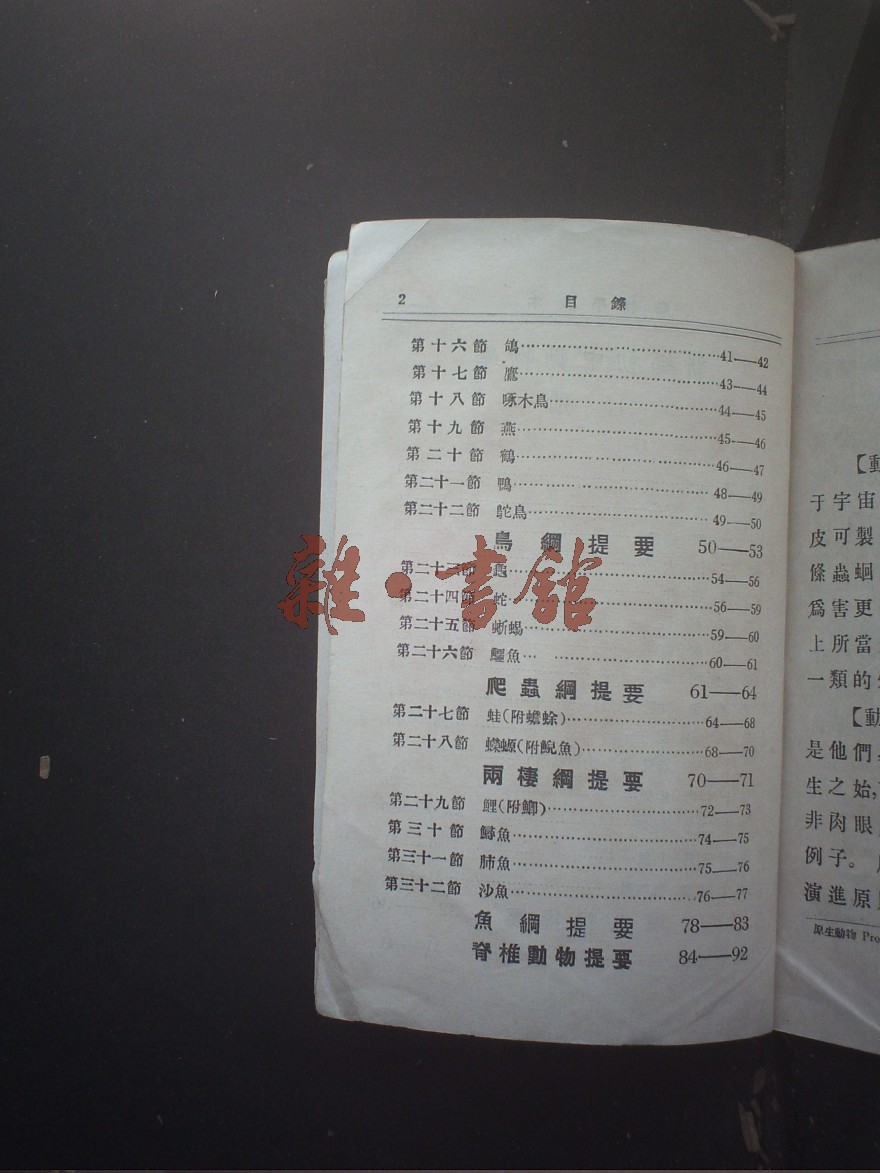 2 目錄
第十六節 鴿 41——42
第十七節 鷹 43——44
第十八節 啄木鳥 44——45
第十九節 燕 45——46
第二十節 鶴 46——47
第二十一節 鴨 48——49
第二十二節 鴕鳥 49——50
鳥綱提要 50——53
第二十三節 龜 54——56
第二十四節 蛇 56——59
第二十五節 蜥蝪 59——60
第二十六節 鱷魚 60——61
爬蟲綱提要 61——64
第二十七節 蛙(附蟾蜍) 64——68
第二十八節 蠑螈(附鯢魚) 68——70
兩棲綱提要 70——71
第二十九節 鯉(附鯽) 72——73
第三十節 鱘魚 74——75
第三十一節 肺魚 75——76
第三十二節 沙魚 76——77
魚綱提要 78——83
脊椎動物提要 84——92
雜·書館
【動
于宇宙
皮可製
條蟲蛔
爲害更
上所當
一類的
【動
是他們
生之始,
非肉眼
例子。
演進原
原生動物 Pro